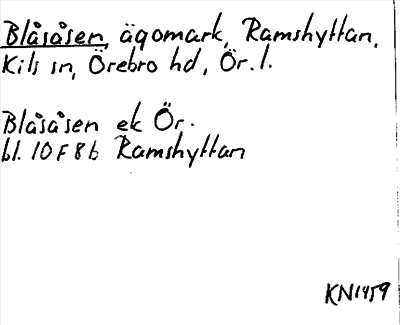 Blåsåsen, ägomark, Ramshyttan,
Kils sn, Örebro hd, Ör. l.
Blåsåsen ek Ör.
bl. 10 F 8 b Ramshyttan
KN1459